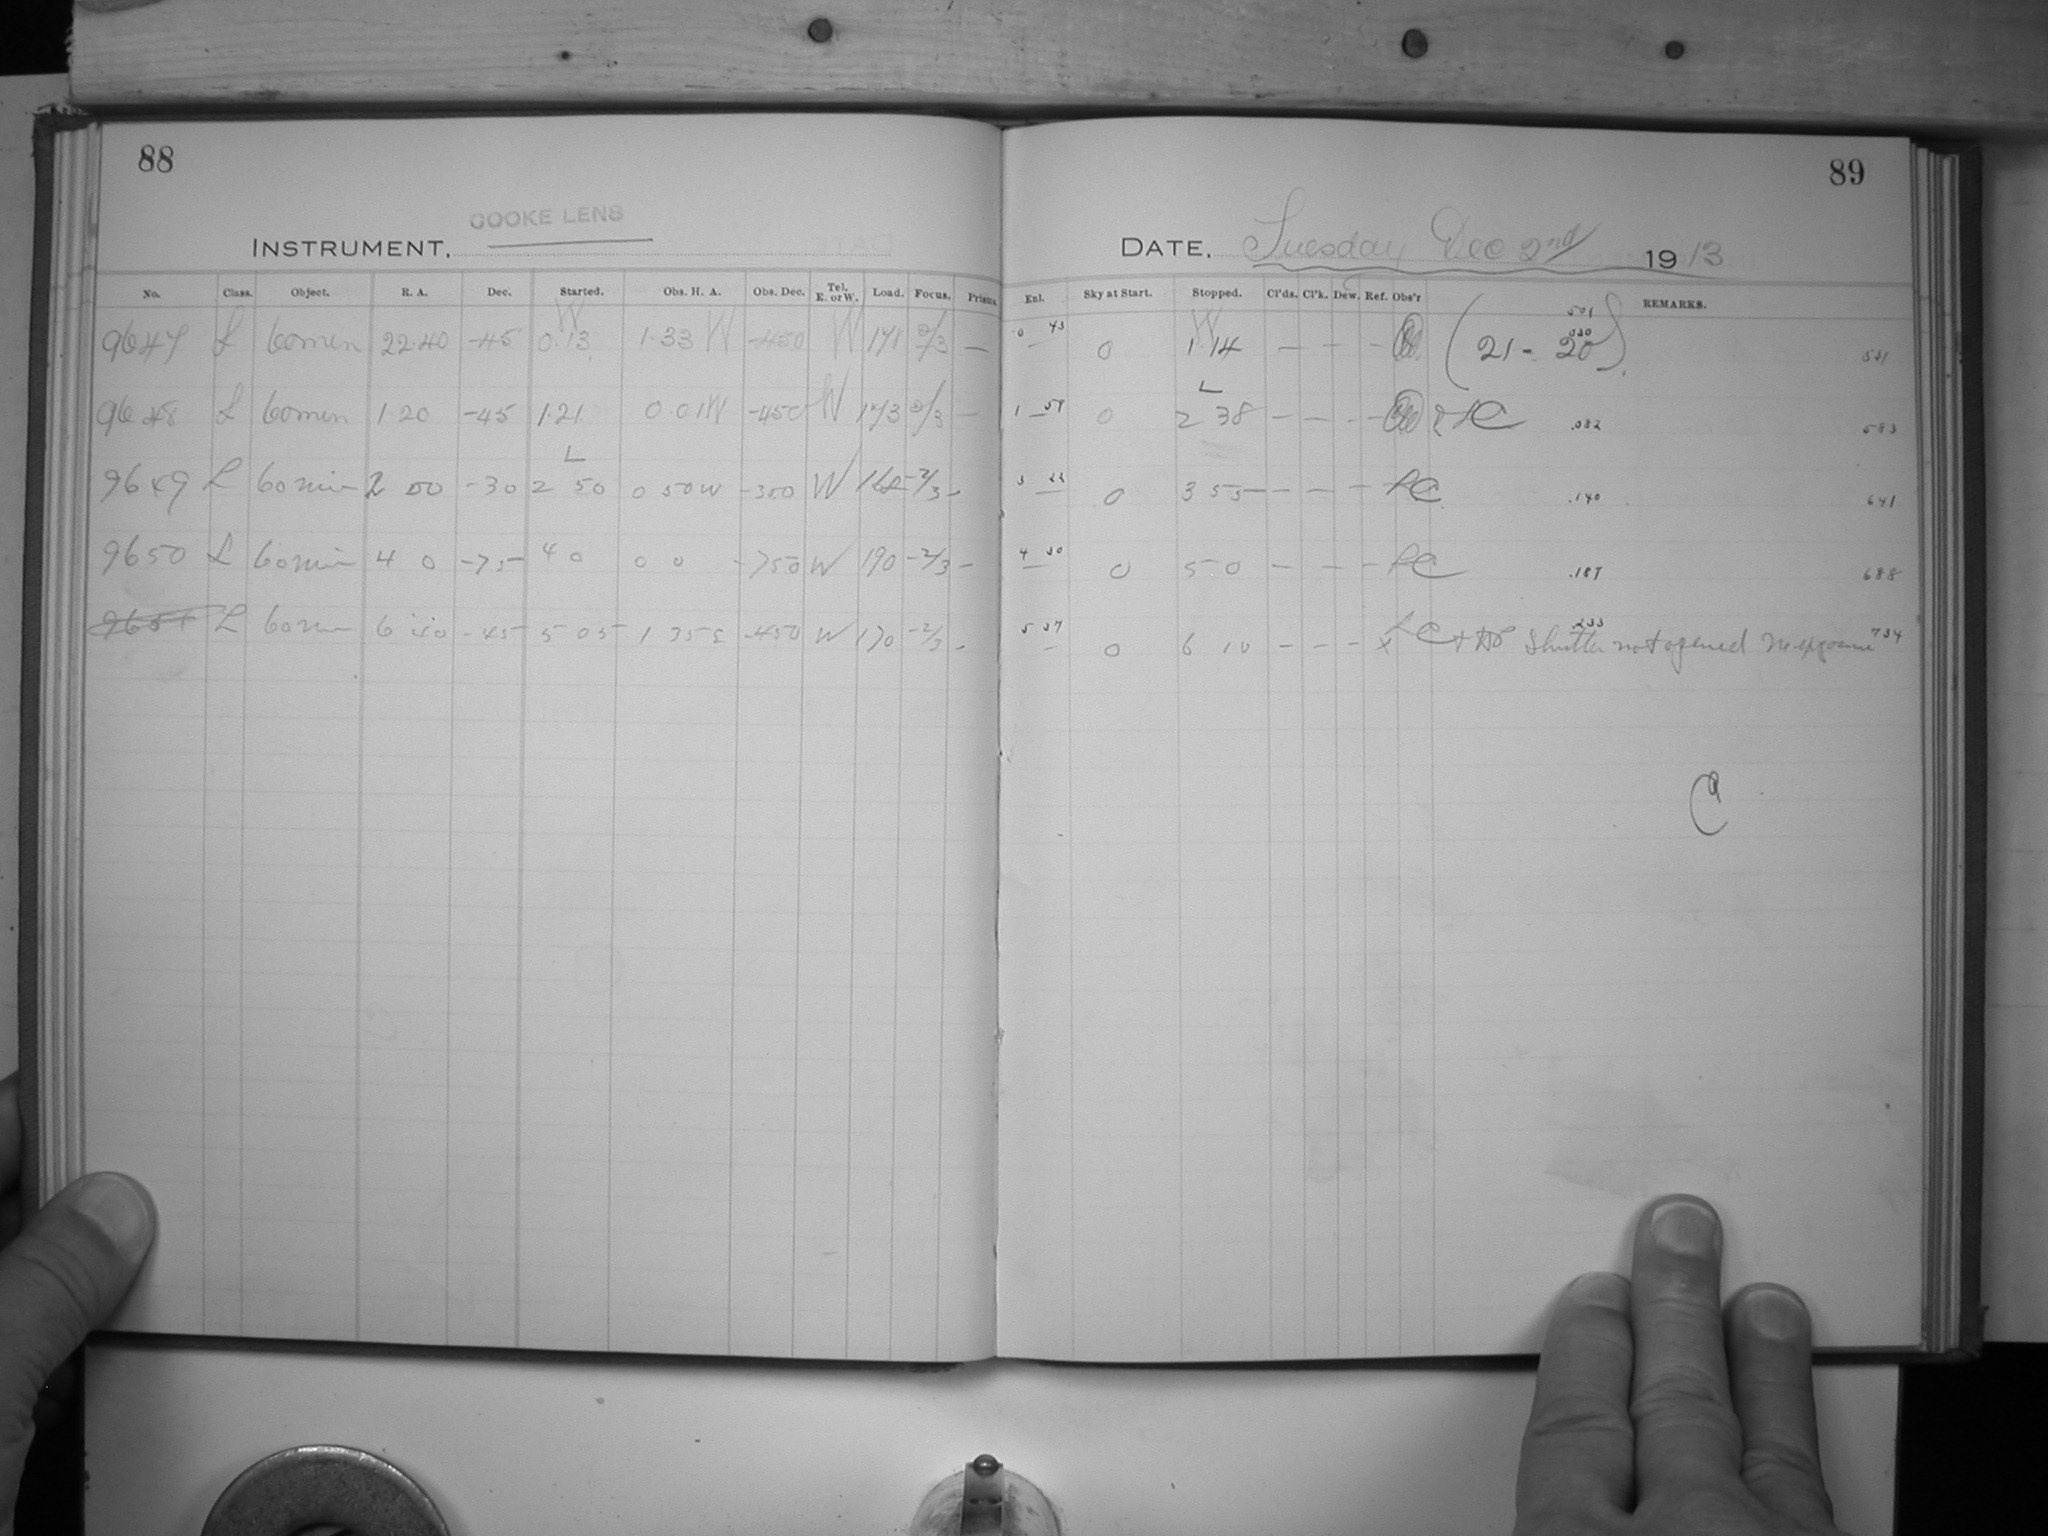 88
COOKE LENS
INSTRUMENT,
No. Class. Object. R. A. Dec. Started. Obs. H. A. Obs. Dec. Tel. E. or W. Load. Focus. Prisms
9647 L 60 min 22.40 -45 0.13 1.33 W -450 W 171 2/3 —
9648 L 60 min 1 20 -45 1.21 0.01 W -450 W 173 2/3 —
9649 L 60 min 2 00 -30 2 50 0 50 W -300 W 168 -2/3 -
9650 L 60 min 4 0 -75 4 0 0 0 -750 W 190 -2/3 -
9651 L 60 min 6 40 -45 5 05 1 35 E -450 W 170 -2/3 -
89
DATE, Tuesday Dec 2nd 1913
Enl. Sky at Start. Stopped. Cl'ds. Cl'k. Dew. Ref. Obs'r REMARKS.
0 43 0 1.14 — — - - (21 - 20) 501 .020 521
1 57 0 2 38 — — - - & LC .082 583
3 22 0 3 55 — — - - LC .140 641
4 30 0 5 0 — — - - LC .187 688
5 37 0 6 10 — — - x LC + Shutter not opened No exposure .233 734